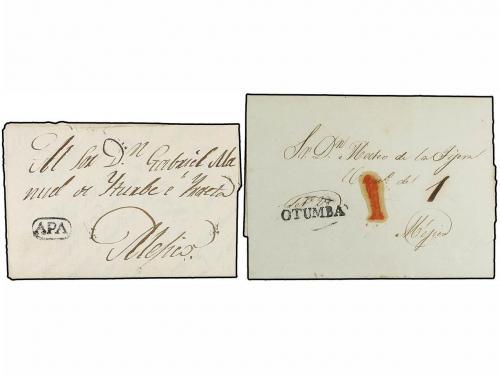 Al Sor. Dn. Gabriel Ma
nuel de Yturbe é Yraeta
APA
Mejico.
Sr. Dn. Mateo de la
1
1
OTUMBA
Méjico